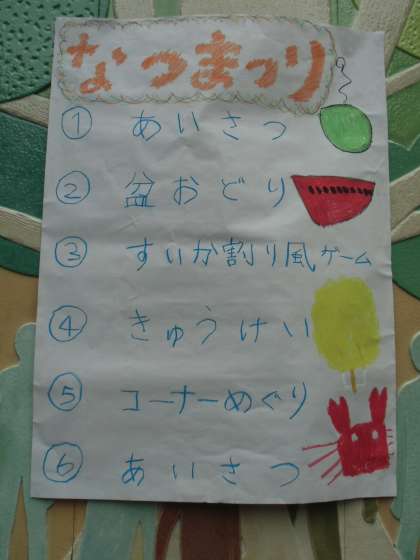 なつまつり
① あいさつ
② 盆おどり
③ すいか割り風ゲーム
④ きゅうけい
⑤ コーナーめぐり
⑥ あいさつ